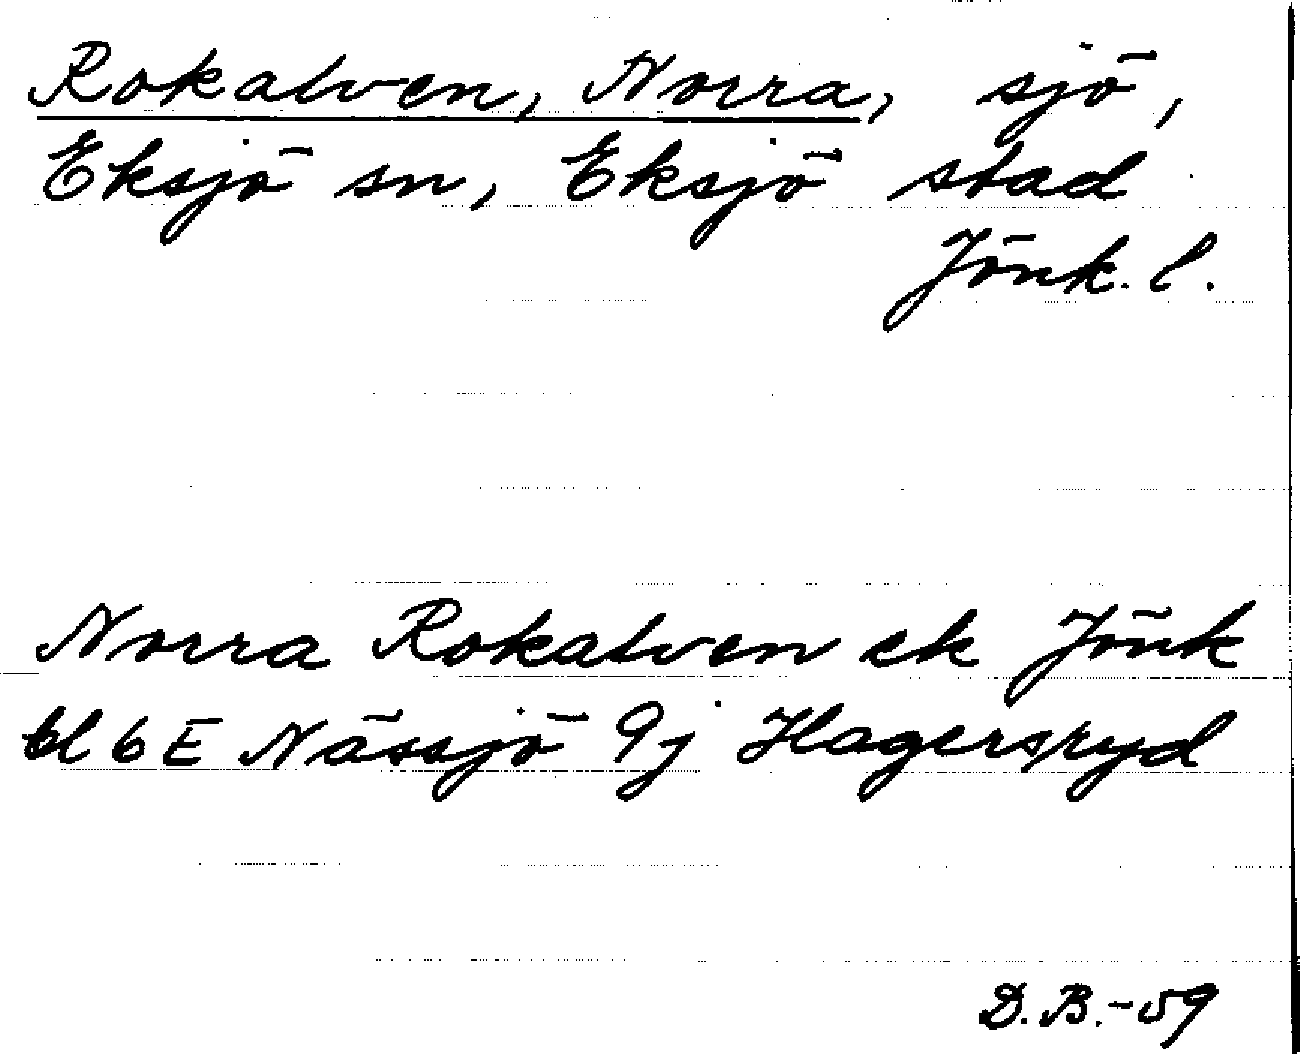 Rokalven, Norra, sjö,
Eksjö sn, Eksjö stad
Jönk. l.
Norra Rokalven ek Jönk
bl 6 E Nässjö 9j Hagersryd
D.B.-59